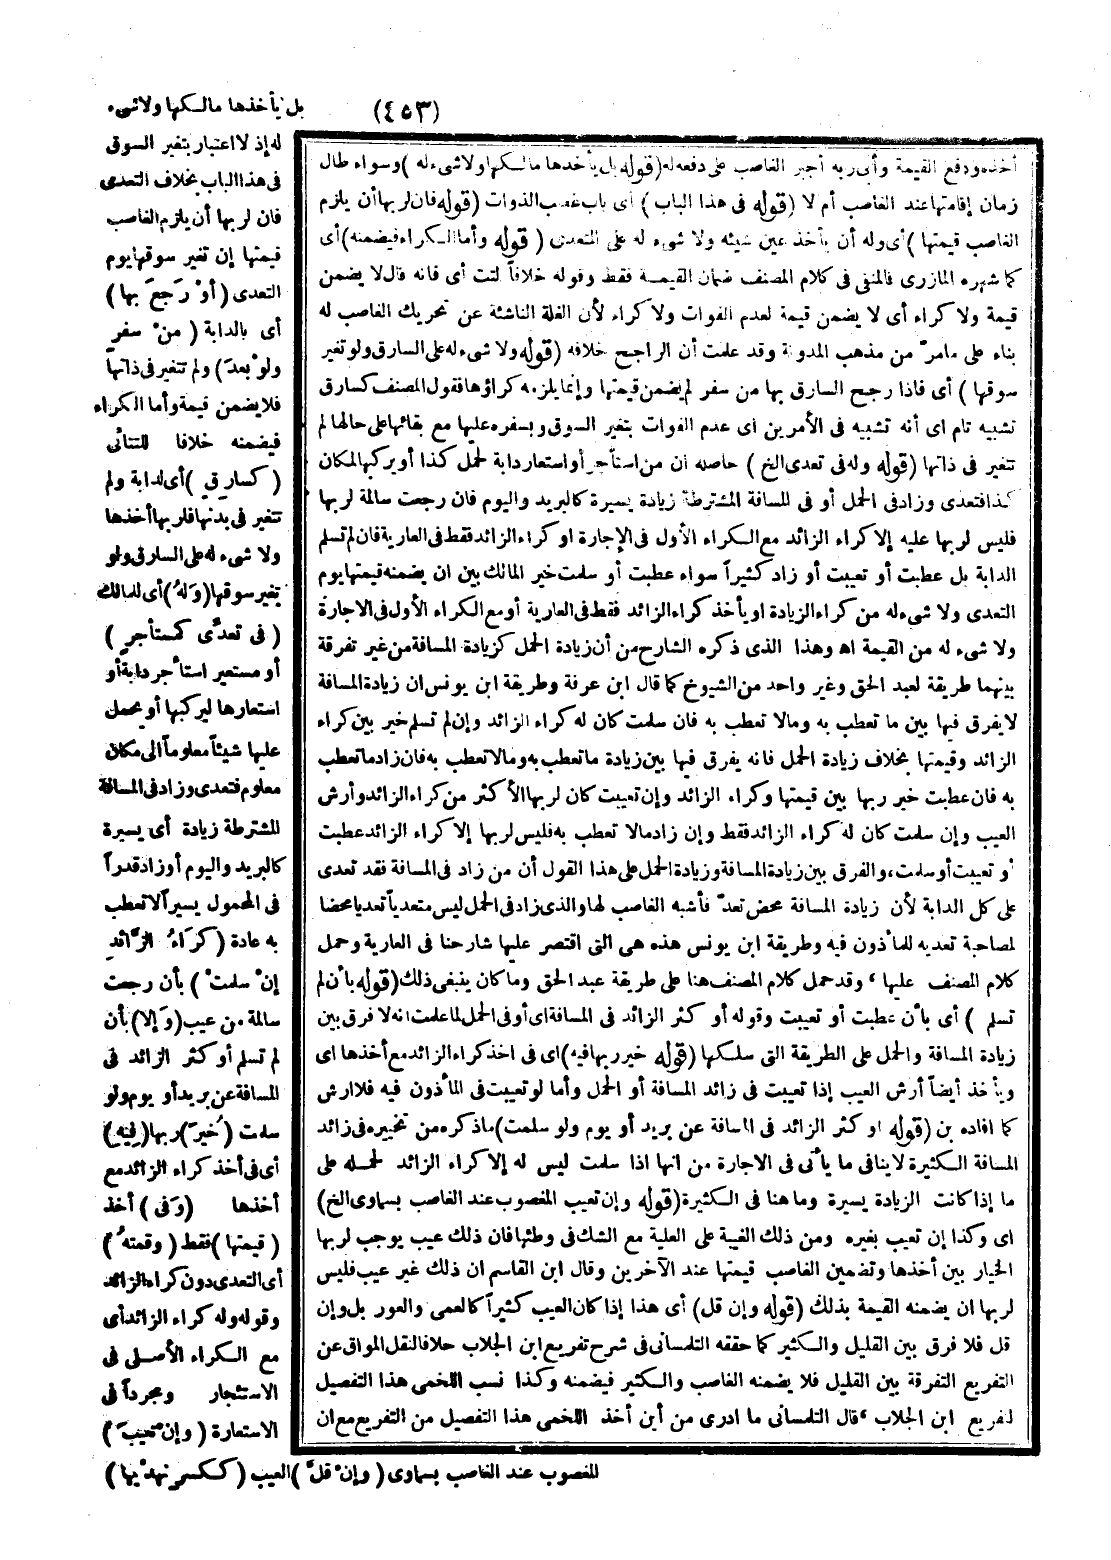 (٤٥٣)
بل يأخذها مالكها ولا شىء
له إذ لا اعتبار بتغير السوق
فى هذا الباب بخلاف التعدى
فان لربها أن يلزم الغاصب
قيمتها إن تغير سوقها يوم
التعدى (أوْ رَجعَ بها)
أى بالدابة (منْ سفرٍ
ولوْ بعدَ) ولم تتغير فى ذاتها
فلا يضمن قيمة وأما الكراء
فيضمنه خلافا للتتائى
(كسارِقٍ) أى لدابة ولم
تتغير فى بدنها فلربها أخذها
ولا شىء له على السارق ولو
تغير سوقها (وَلهُ) أى للمالك
(فى تعدِّى كمستأجرٍ)
أو مستعير استأجر دابة أو
استعارها ليركبها أو يحمل
عليها شيئاً معلوماً الى مكان
معلوم فتعدى وزاد فى المسافة
المشترطة زيادة أى يسيرة
كالبريد واليوم أو زاد قدراً
فى المحمول يسيراً لا تعطب
به عادة (كرَاءُ الزَّائدِ
إنْ سلمتْ) بأن رجعت
سالمة من عيب (وَإلا) بأن
لم تسلم أو كثر الزائد فى
المسافة عن بريد أو يوم ولو
سلمت (خُيرَ) ربها (فِيهِ)
أى فى أخذ كراء الزائد مع
أخذها (وَفى) أخذ
(قيمتها) فقط (وقتهُ)
أى التعدى دون كراء الزائد
وقوله وله كراء الزائد أى
مع الكراء الأصلى فى
الاستئجار ومجرداً فى
الاستعارة (وإنْ تعيبَ)
المغصوب عند الغاصب بسماوى (وإنْ قلَّ) العيب (ككسرِ نهديها)
أخذه ودفع القيمة وأبى ربه أجبر الغاصب على دفعه له (قوله بل يأخذها مالكها ولا شىء له) وسواء طال
زمان إقامتها عند الغاصب أم لا (قوله فى هذا الباب) أى باب غصب الذوات (قوله فان لربها أن يلزم
الغاصب قيمتها) أى وله أن يأخذ عين شيئه ولا شىء له على المتعدى (قوله وأما الكراء فيضمنه) أى
كما شهره المازرى فالمنفى فى كلام المصنف ضمان القيمة فقط وقوله خلافاً لتت أى فانه قال لا يضمن
قيمة ولا كراء أى لا يضمن قيمة لعدم الفوات ولا كراء لأن الغلة الناشئة عن تحريك الغاصب له
بناء على مامرّ من مذهب المدونة وقد علمت أن الراجح خلافه (قوله ولا شىء له على السارق ولو تغير
سوقها) أى فاذا رجع السارق بها من سفر لم يضمن قيمتها وإنما يلزمه كراؤها فقول المصنف كسارق
تشبيه تام اى أنه تشبيه فى الأمرين اى عدم الفوات بتغير السوق وبسفره عليها مع بقائها على حالها لم
تتغير فى ذاتها (قوله وله فى تعدى الخ) حاصله ان من استأجر أو استعار دابة لحمل كذا أو يركبها لمكان
كذا فتعدى وزاد فى الحمل أو فى المسافة المشترطة زيادة يسيرة كالبريد واليوم فان رجعت سالمة لربها
فليس لربها عليه إلا كراء الزائد مع الكراء الأول فى الإجارة او كراء الزائد فقط فى العارية فان لم تسلم
الدابة بل عطبت أو تعيبت أو زاد كثيراً سواء عطبت أو سلمت خير المالك بين ان يضمنه قيمتها يوم
التعدى ولا شىء له من كراء الزيادة او يأخذ كراء الزائد فقط فى العارية أو مع الكراء الأول فى الاجارة
ولا شىء له من القيمة اه وهذا الذى ذكره الشارح من أن زيادة الحمل كزيادة المسافة من غير تفرقة
بينهما طريقة لعبد الحق وغير واحد من الشيوخ كما قال ابن عرفة وطريقة ابن يونس ان زيادة المسافة
لا يفرق فيها بين ما تعطب به ومالا تعطب به فان سلمت كان له كراء الزائد وإن لم تسلم خير بين كراء
الزائد وقيمتها بخلاف زيادة الحمل فانه يفرق فيها بين زيادة ما تعطب به ومالا تعطب به فان زاد ما تعطب
به فان عطبت خير ربها بين قيمتها وكراء الزائد وإن تعيبت كان لربها الأكثر من كراء الزائد وأرش
العيب وإن سلمت كان له كراء الزائد فقط وإن زاد مالا تعطب به فليس لربها إلا كراء الزائد عطبت
أو تعيبت أو سلمت، والفرق بين زيادة المسافة وزيادة الحمل على هذا القول أن من زاد فى المسافة فقد تعدى
على كل الدابة لأن زيادة المسافة محض تعدّ فأشبه الغاصب لها والذى زاد فى الحمل ليس متعدياً تعديا محضا
لمصاحبة تعديه للمأذون فيه وطريقة ابن يونس هذه هى التى اقتصر عليها شارحنا فى العارية وحمل
كلام المصنف عليها، وقد حمل كلام المصنف هنا على طريقة عبد الحق وما كان ينبغى ذلك (قوله بأن لم
تسلم) أى بأن عطبت أو تعيبت وقوله أو كثر الزائد فى المسافة اى أو فى الحمل لما علمت انه لا فرق بين
زيادة المسافة والحمل على الطريقة التى سلكها (قوله خير ربها فيه) اى فى اخذ كراء الزائد مع أخذها اى
ويأخذ أيضاً أرش العيب إذا تعيبت فى زائد المسافة أو الحمل وأما لو تعيبت فى المأذون فيه فلا ارش
كما افاده بن (قوله او كثر الزائد فى المسافة عن بريد أو يوم ولو سلمت) ما ذكره من تخييره فى زائد
المسافة الكثيرة لا ينافى ما يأتى فى الاجارة من انها اذا سلمت ليس له إلا كراء الزائد لحمله على
ما إذا كانت الزيادة يسيرة وما هنا فى الكثيرة (قوله وإن تعيب المغصوب عند الغاصب بسماوى الخ)
اى وكذا إن تعيب بغيره ومن ذلك الغيبة على العلية مع الشك فى وطئها فان ذلك عيب يوجب لربها
الخيار بين أخذها وتضمين الغاصب قيمتها عند الآخرين وقال ابن القاسم ان ذلك غير عيب فليس
لربها ان يضمنه القيمة بذلك (قوله وإن قل) أى هذا إذا كان العيب كثيراً كالعمى والعور بل وإن
قل فلا فرق بين القليل والكثير كما حققه التلمسانى فى شرح تفريع ابن الجلاب خلافا لنقل المواق عن
التفريع التفرقة بين القليل فلا يضمنه الغاصب والكثير فيضمنه وكذا نسب اللخمى هذا التفصيل
لتفريع ابن الجلاب، قال التلمسانى ما ادرى من أين أخذ اللخمى هذا التفصيل من التفريع مع ان